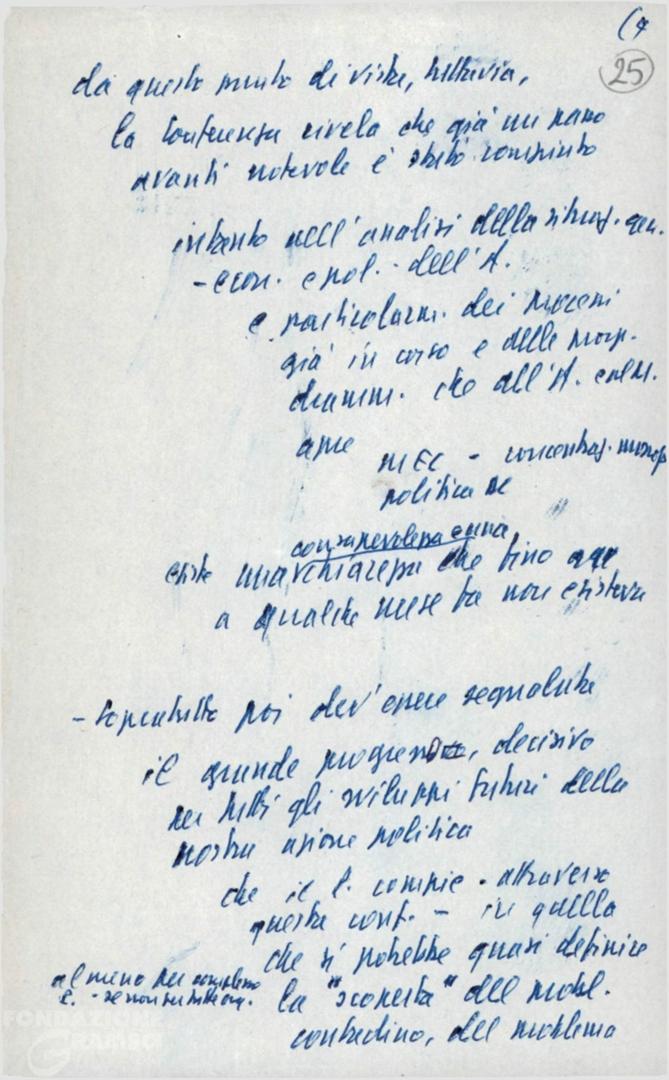 (4
25
da questo punto di vista, tuttavia,
la Conferenza rivela che già un passo
avanti notevole è stato compiuto
intanto nell'analisi della situaz. gen.
- econ. e pol. - dell'A.
e particolarm. dei processi
già in corso e delle prosp.
dramm. che all'A.
apre
MEC - concentraz. monop
politica DC
consapevolezza e una
esiste una chiarezza che fino
a qualche mese fa non esisteva
- Sopratutto poi dev'essere segnalato
il grande progresso, decisivo
per tutti gli sviluppi futuri della
nostra azione politica
che il P. compie - attraverso
questa conf. - in quella
che si potrebbe quasi definire
almeno per complesso
P. - se non per tutte org.
la "scoperta" del probl.
contadino, del problema
FONDAZIONE
GRAMSCI